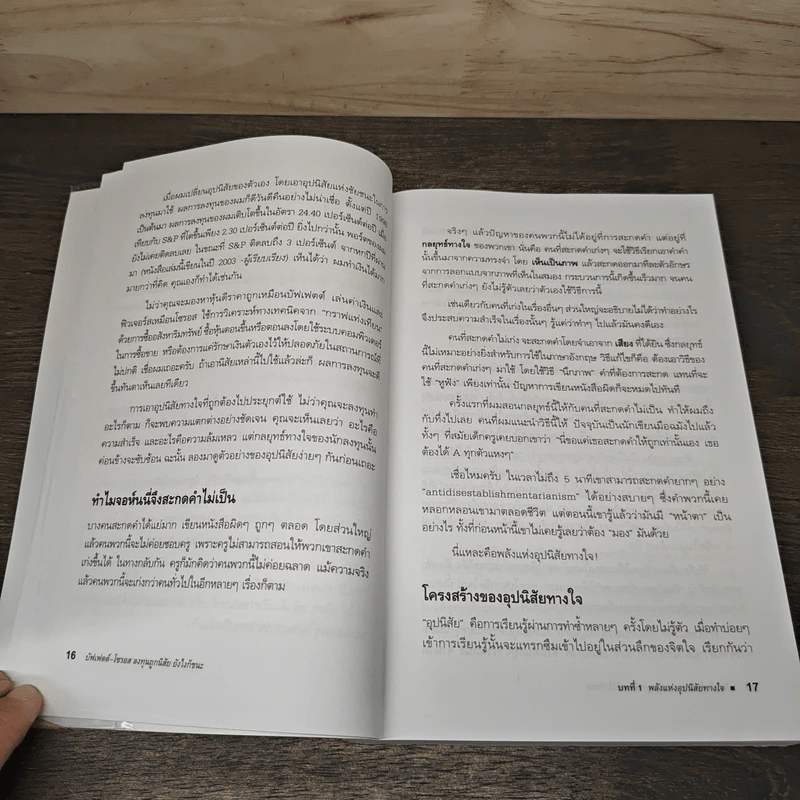 เมื่อผมเปลี่ยนอุปนิสัยของตัวเอง โดยเอาอุปนิสัยแห่งชัยชนะในการ
ลงทุนมาใช้ ผลการลงทุนของผมก็ดีวันดีคืนอย่างไม่น่าเชื่อ ตั้งแต่ปี 1998
เป็นต้นมา ผลการลงทุนของผมเติบโตขึ้นในอัตรา 24.40 เปอร์เซ็นต์ต่อปี เมื่อ
เทียบกับ S&P ที่โตขึ้นเพียง 2.30 เปอร์เซ็นต์ต่อปี ยิ่งไปกว่านั้น พอร์ตของผม
ยังไม่เคยติดลบเลย ในขณะที่ S&P ติดลบถึง 3 เปอร์เซ็นต์ จากหกปีที่ผ่าน
มา (หนังสือเล่มนี้เขียนในปี 2003 -ผู้เรียบเรียง) เห็นได้ว่า ผมทำเงินได้มาก
มายกว่าที่คิด คุณเองก็ทำได้เช่นกัน
ไม่ว่าคุณจะมองหาหุ้นดีราคาถูกเหมือนบัฟเฟตต์ เล่นค่าเงินและ
ฟิวเจอร์สเหมือนโซรอส ใช้การวิเคราะห์ทางเทคนิคจาก "กราฟแท่งเทียน"
ด้วยการซื้ออสังหาริมทรัพย์ ซื้อหุ้นตอนขึ้นหรือตอนลงโดยใช้ระบบคอมพิวเตอร์
ในการซื้อขาย หรือต้องการแค่รักษาเงินตัวเองไว้ให้ปลอดภัยในสถานการณ์ที่
ไม่ปกติ เชื่อผมเถอะครับ ถ้าเอานิสัยเหล่านี้ไปใช้แล้วล่ะก็ ผลการลงทุนจะดี
ขึ้นทันตาเห็นเลยทีเดียว
การเอาอุปนิสัยทางใจที่ถูกต้องไปประยุกต์ใช้ ไม่ว่าคุณจะลงทุนทำ
อะไรก็ตาม ก็จะพบความแตกต่างอย่างชัดเจน คุณจะเห็นเลยว่า อะไรคือ
ความสำเร็จ และอะไรคือความล้มเหลว แต่กลยุทธ์ทางใจของนักลงทุนนั้น
ค่อนข้างจะซับซ้อน ฉะนั้น ลองมาดูตัวอย่างของอุปนิสัยง่ายๆ กันก่อนเถอะ
ทำไมจอห์นนี่จึงสะกดคำไม่เป็น
บางคนสะกดคำได้แย่มาก เขียนหนังสือผิดๆ ถูกๆ ตลอด โดยส่วนใหญ่
แล้วคนพวกนี้จะไม่ค่อยชอบครู เพราะครูไม่สามารถสอนให้พวกเขาสะกดคำ
เก่งขึ้นได้ ในทางกลับกัน ครูก็มักคิดว่าคนพวกนี้ไม่ค่อยฉลาด แม้ความจริง
แล้วคนพวกนี้จะเก่งกว่าคนทั่วไปในอีกหลายๆ เรื่องก็ตาม
16 บัฟเฟตต์-โซรอส ลงทุนถูกนิสัย ยังไงก็ชนะ
จริงๆ แล้วปัญหาของคนพวกนี้ไม่ได้อยู่ที่การสะกดคำ แต่อยู่ที่
กลยุทธ์ทางใจ ของพวกเขา นั่นคือ คนที่สะกดคำเก่งๆ จะใช้วิธีเรียกเอาคำคำ
นั้นขึ้นมาจากความทรงจำ โดย เห็นเป็นภาพ แล้วสะกดออกมาทีละตัวอักษร
จากการลอกแบบจากภาพที่เห็นในสมอง กระบวนการนี้เกิดขึ้นเร็วมาก จนคน
ที่สะกดคำเก่งๆ ยังไม่รู้ตัวเลยว่าตัวเองใช้วิธีการนี้
เช่นเดียวกับคนที่เก่งในเรื่องอื่นๆ ส่วนใหญ่จะอธิบายไม่ได้ว่าทำอย่างไร
จึงประสบความสำเร็จในเรื่องนั้นๆ รู้แต่ว่าทำๆ ไปแล้วมันคงดีเอง
คนที่สะกดคำไม่เก่ง จะสะกดคำโดยจำเอาจาก เสียง ที่ได้ยิน ซึ่งกลยุทธ์
นี้ไม่เหมาะอย่างยิ่งสำหรับการใช้ในภาษาอังกฤษ วิธีแก้ไขก็คือ ต้องเอาวิธีของ
คนที่สะกดคำเก่งๆ มาใช้ โดยใช้วิธี "นึกภาพ" คำที่ต้องการสะกด แทนที่จะ
ใช้ "หูฟัง" เพียงเท่านั้น ปัญหาการเขียนหนังสือผิดก็จะหมดไปทันที
ครั้งแรกที่ผมสอนกลยุทธ์นี้ให้กับคนที่สะกดคำไม่เป็น ทำให้ผมถึง
กับทึ่งไปเลย คนที่ผมแนะนำวิธีนี้ให้ ปัจจุบันเป็นนักเขียนมือฉมังไปแล้ว
ทั้งๆ ที่สมัยเด็กครูเคยบอกเขาว่า "นี่ขอแค่เธอสะกดคำให้ถูกเท่านั้นเอง เธอ
ต้องได้ A ทุกตัวแหงๆ"
เชื่อไหมครับ ในเวลาไม่ถึง 5 นาทีเขาสามารถสะกดคำยากๆ อย่าง
"antidisestablishmentarianism" ได้อย่างสบายๆ ซึ่งคำพวกนี้เคย
หลอกหลอนเขามาตลอดชีวิต แต่ตอนนี้เขารู้แล้วว่ามันมี "หน้าตา" เป็น
อย่างไร ทั้งที่ก่อนหน้านี้เขาไม่เคยรู้เลยว่าต้อง "มอง" มันด้วย
นี่แหละคือพลังแห่งอุปนิสัยทางใจ!
โครงสร้างของอุปนิสัยทางใจ
"อุปนิสัย" คือการเรียนรู้ผ่านการทำซ้ำหลายๆ ครั้งโดยไม่รู้ตัว เมื่อทำบ่อยๆ
เข้าการเรียนรู้นั้นจะแทรกซึมเข้าไปอยู่ในส่วนลึกของจิตใจ เรียกกันว่า
บทที่ 1 พลังแห่งอุปนิสัยทางใจ ■ 17